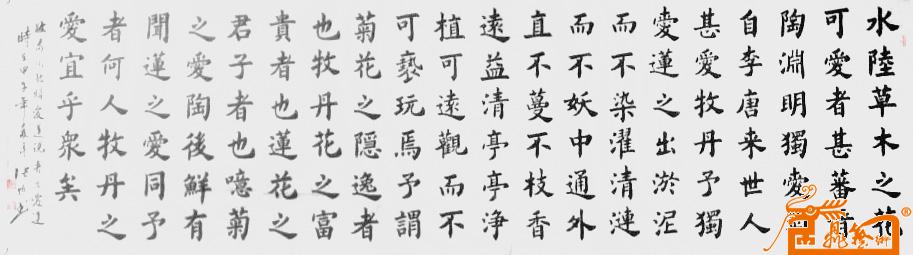 水陸草木之花
可愛者甚蕃晉
陶淵明獨愛
自李唐来世人
甚愛牧丹予獨
愛蓮之出淤泥
而不染濯清漣
而不妖中通外
直不蔓不枝香
遠益清亭亭浄
植可遠觀而不
可褻玩焉予謂
菊花之隱逸者
也牧丹花之富
貴者也蓮花之
君子者也噫菊
之愛陶後鮮有
聞蓮之愛同予
者何人牧丹之
愛宜乎衆矣